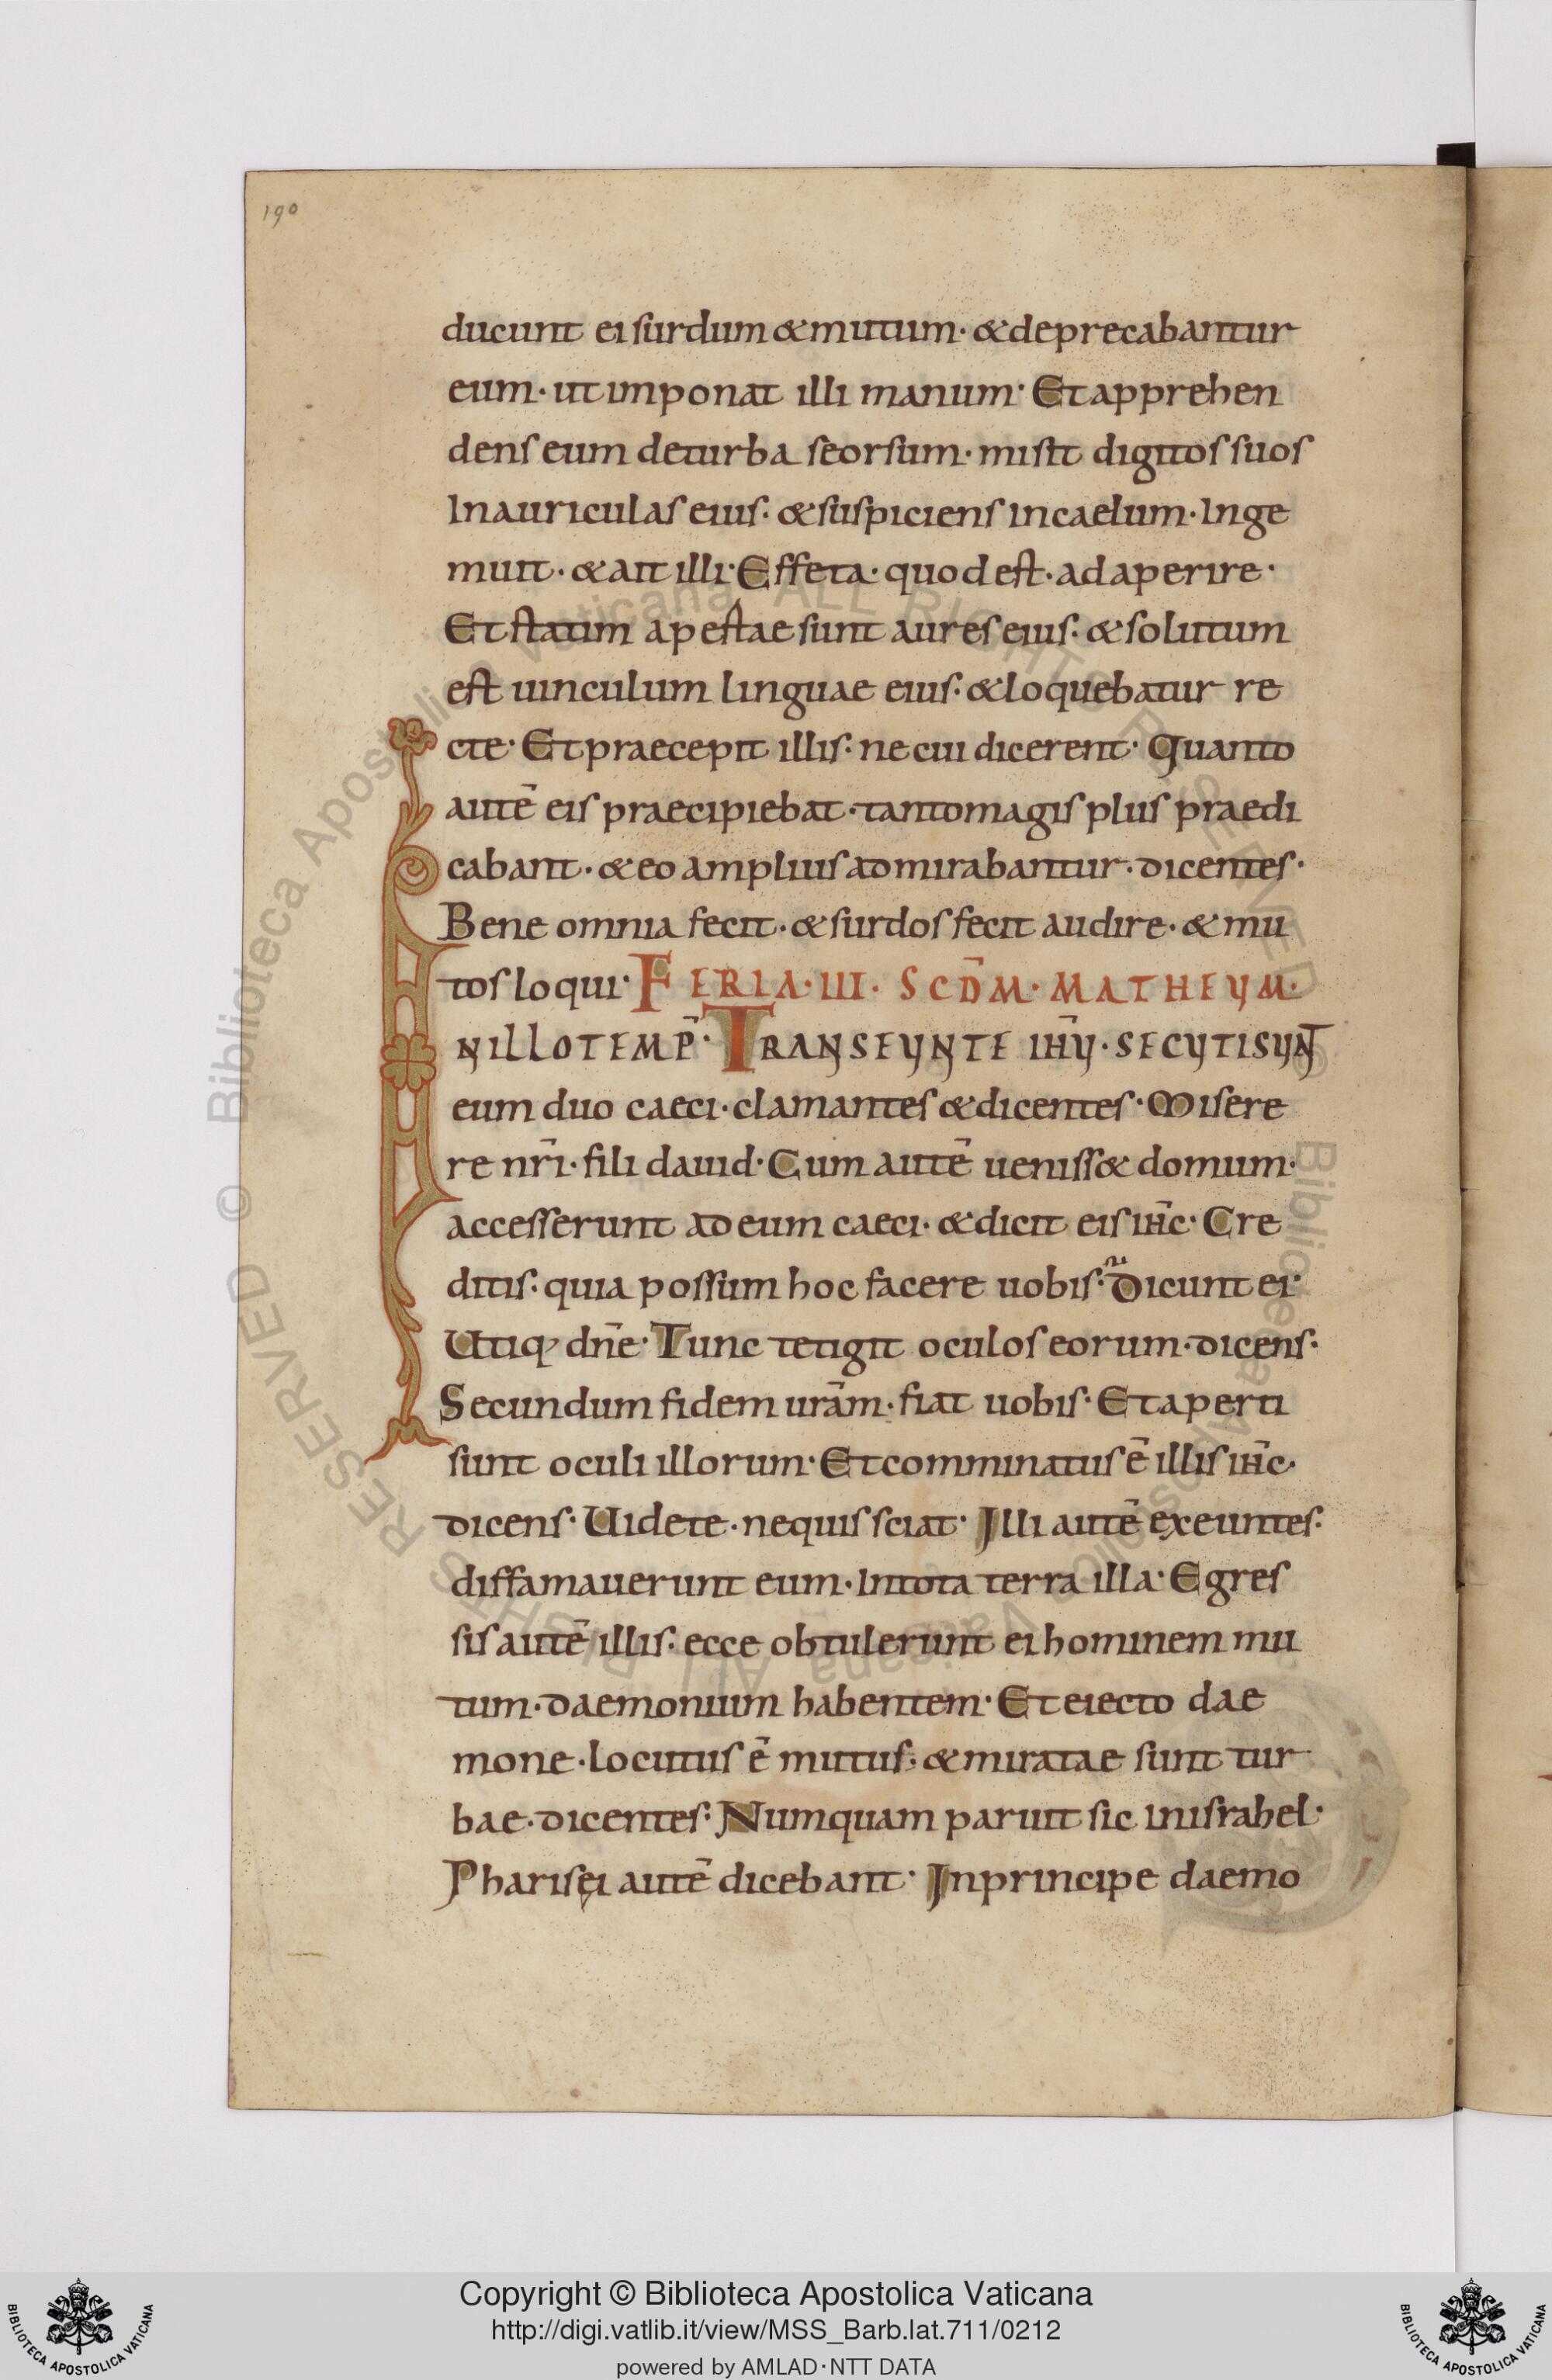 190
ducunt ei surdum & mutum· & deprecabantur
eum· ut imponat illi manum· Et apprehen
dens eum deturba seorsum· misit digitos suos
In auriculas eius· & suspiciens in caelum· Inge
muit· & ait illi· Effeta· quod est· adaperire·
Et statim apestae sunt aures eius· & solutum
est uinculum linguae eius· & loquebatur re
cte· Et praecepit illis· ne cui dicerent· Quanto
autē eis praecipiebat· tanto magis plus praedi
cabant· & eo amplius admirabantur· dicentes·
Bene omnia fecit· & surdos fecit audire· & mu
tos loqui· FERIA·III· SCD̄M· MATHEUM·
IN ILLO TEMP̄· TRANSEUNTE IH̄U· SECUTI SUNT
eum duo caeci· clamantes & dicentes· Misere
re nr̄i· fili dauid· Cum autēueniss& domum·
accesserunt ad eum caeci· & dicit eis ih̄c· Cre
ditis· quia possum hoc facere uobis· Dicunt ei·
Utiq; dn̄e· Tunc tetigit oculos eorum· dicens·
Secundum fidem urām· fiat uobis· Et aperti
sunt oculi illorum· Et comminatus ē illis ih̄c·
dicens· Uidete· nequis sciat· Illi autē exeuntes·
diffamauerunt eum· In tota terra illa· Egres
sis autē illis· ecce obtulerunt ei hominem mu
tum· daemonium habentem· Et eiecto dae
mone· locutus ē mutus· & miratae sunt tur
bae· dicentes· Numquam paruit sic in israhel·
Pharisęi autē dicebant· In principe daemo
© Biblioteca Apostolica Vaticana ALL RIGHTS RESERVED
Copyright © Biblioteca Apostolica Vaticana
http://digi.vatlib.it/view/MSS_Barb.lat.711/0212
powered by AMLAD·NTT DATA
BIBLIOTECA APOSTOLICA VATICANA
BIBLIOTECA APOSTOLICA VATICANA